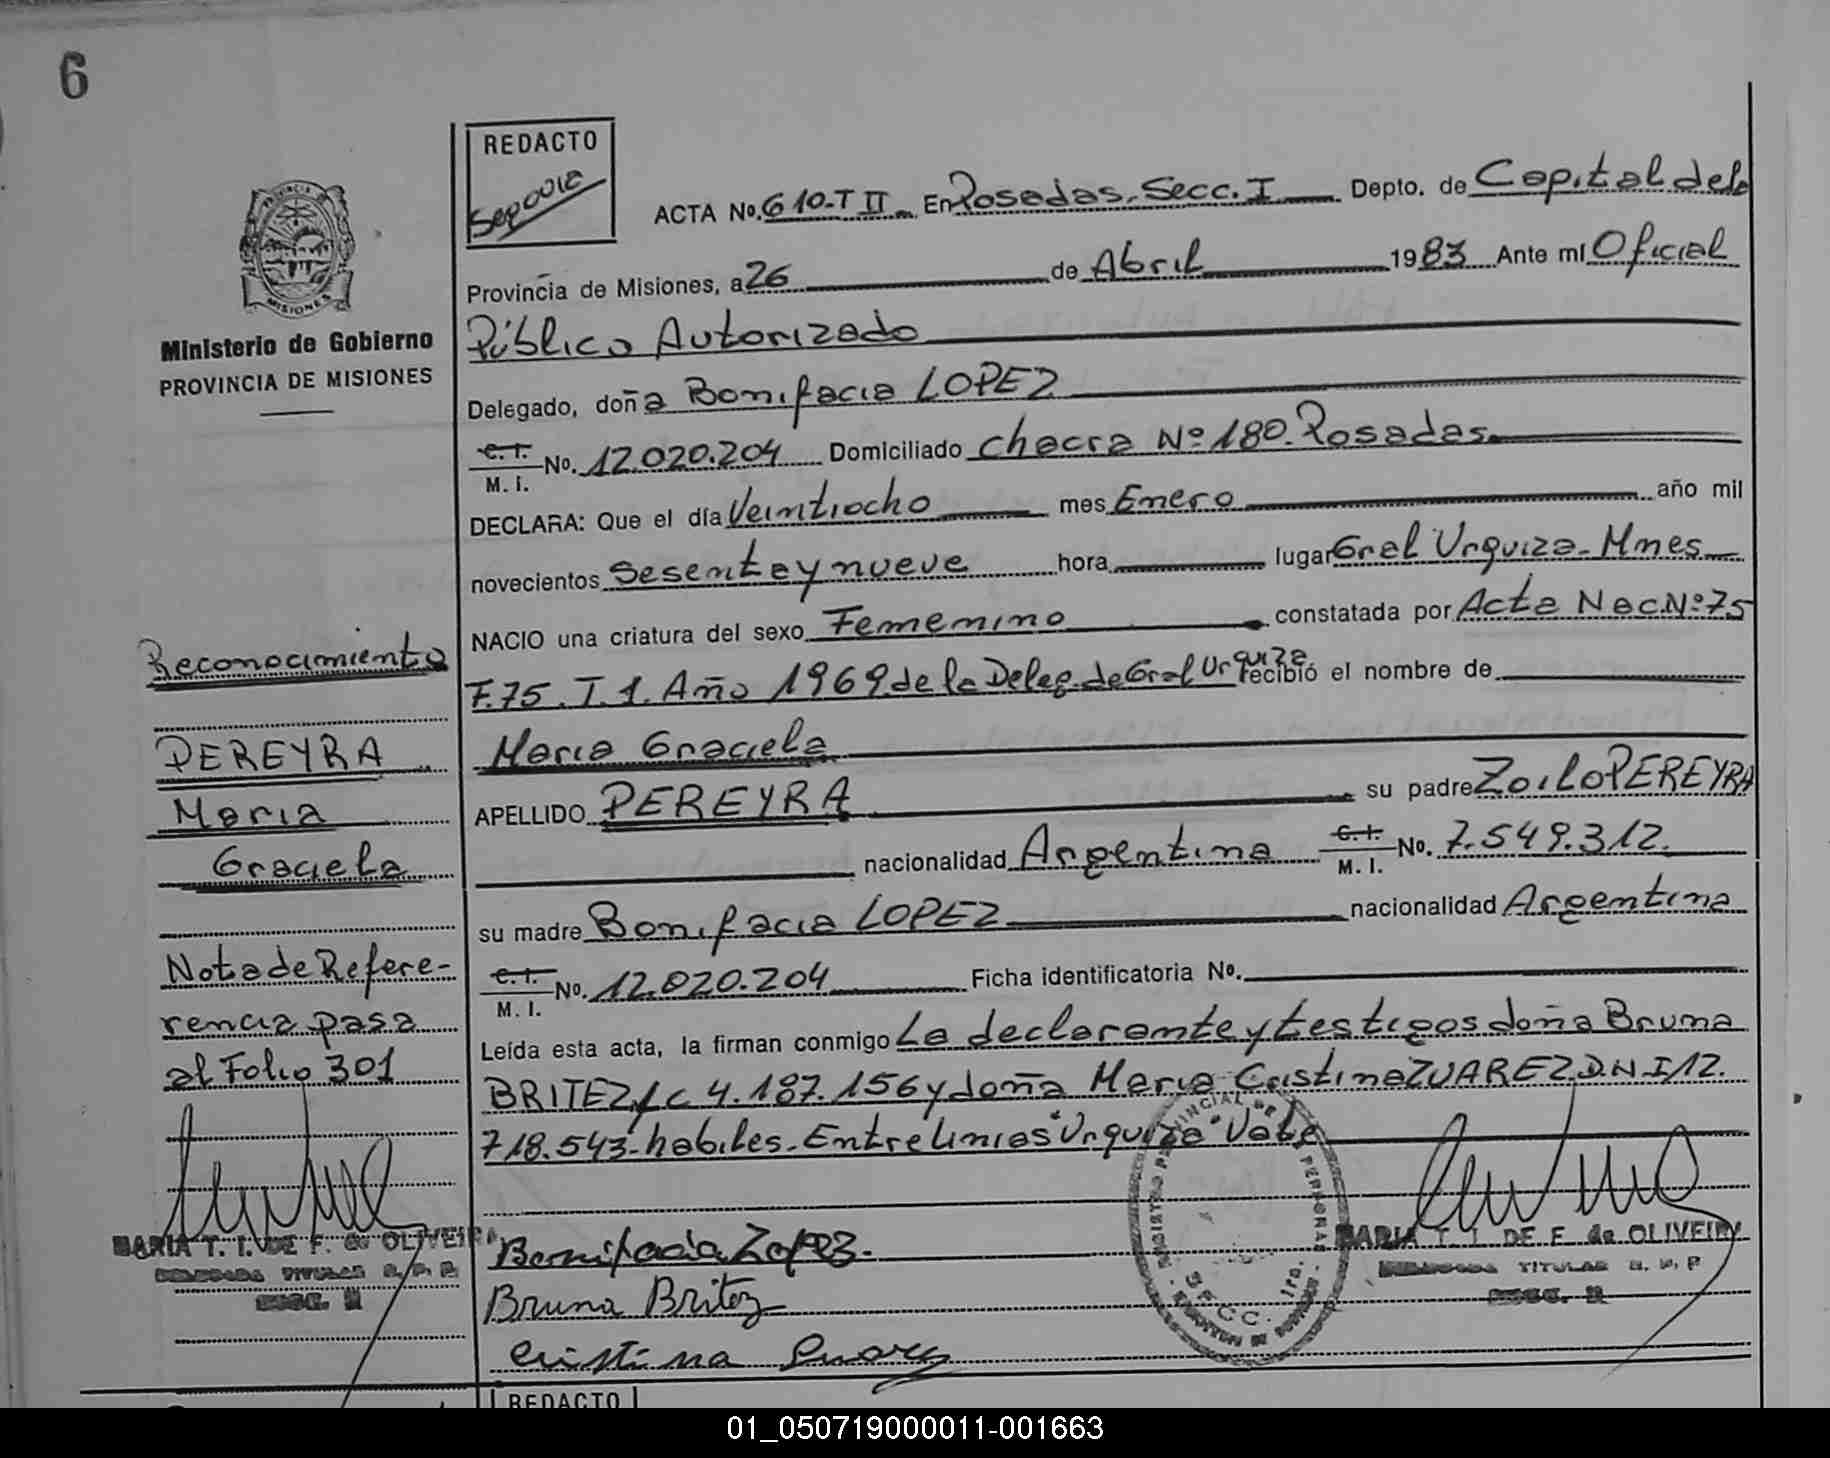 6
REDACTO
Segovia
ACTA No. 610-T II En Posadas. Secc. I Depto. de Capital de la
Provincia de Misiones, a 26 de Abril 1983 Ante mí Oficial
Público Autorizado
Delegado, doña Bonifacia LOPEZ
C. I. No. 12.020.204 Domiciliado Chacra Nº 180. Posadas
M. I.
DECLARA: Que el día Veintiocho mes Enero año mil
novecientos Sesenta y nueve hora lugar Gral Urquiza-Mnes
NACIO una criatura del sexo Femenino constatada por Acta Nac. Nº 75
F. 75. T. 1. Año 1969 de la Deleg. de Gral Urquiza recibió el nombre de
Maria Graciela
APELLIDO PEREYRA su padre Zoilo PEREYRA
nacionalidad Argentina C. I. No. 7.549.312.
M. I.
su madre Bonifacia LOPEZ nacionalidad Argentina
C. I. No. 12.020.204 Ficha identificatoria No.
M. I.
Leída esta acta, la firman conmigo La declarante y testigos doña Bruna
BRITEZ L C 4.187.156 y doña Maria Cristina ZUAREZ D.N.I 12.
718.543-habiles. Entrelinias "Urquiza" Vale
Bonifacia Lopez.
Bruna Britez
Cristina Suarez
PROVINCIA
MISIONES
Ministerio de Gobierno
PROVINCIA DE MISIONES
Reconocimiento
PEREYRA
Maria
Graciela
Nota de Refere-
rencia pasa
al Folio 301
MARIA T. I. DE F. de OLIVEIRA
DELEGADA TITULAR R. P. P.
SECC.
MARIA T. I. DE F. de OLIVEIRA
DELEGADA TITULAR R. P. P
SECC.
REGISTRO PROVINCIAL DE PERSONAS
SECC. 1ra.
REDACTO
01_050719000011-001663